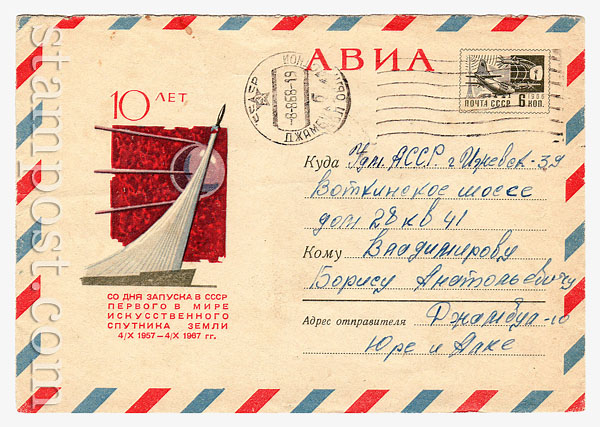 АВИА
10 ЛЕТ
ПОЧТА СССР 6 КОП.
8-8-68-19
Куда Удм. АССР. г. Ижевск-39
Воткинское шоссе
дом 28 кв 41
Кому Владимирову
Борису Анатольевичу
СО ДНЯ ЗАПУСКА В СССР
ПЕРВОГО В МИРЕ
ИСКУССТВЕННОГО
СПУТНИКА ЗЕМЛИ
4/X 1957—4/X 1967 гг.
Адрес отправителя Джамбул-10
Юре и Алке
stampost.com